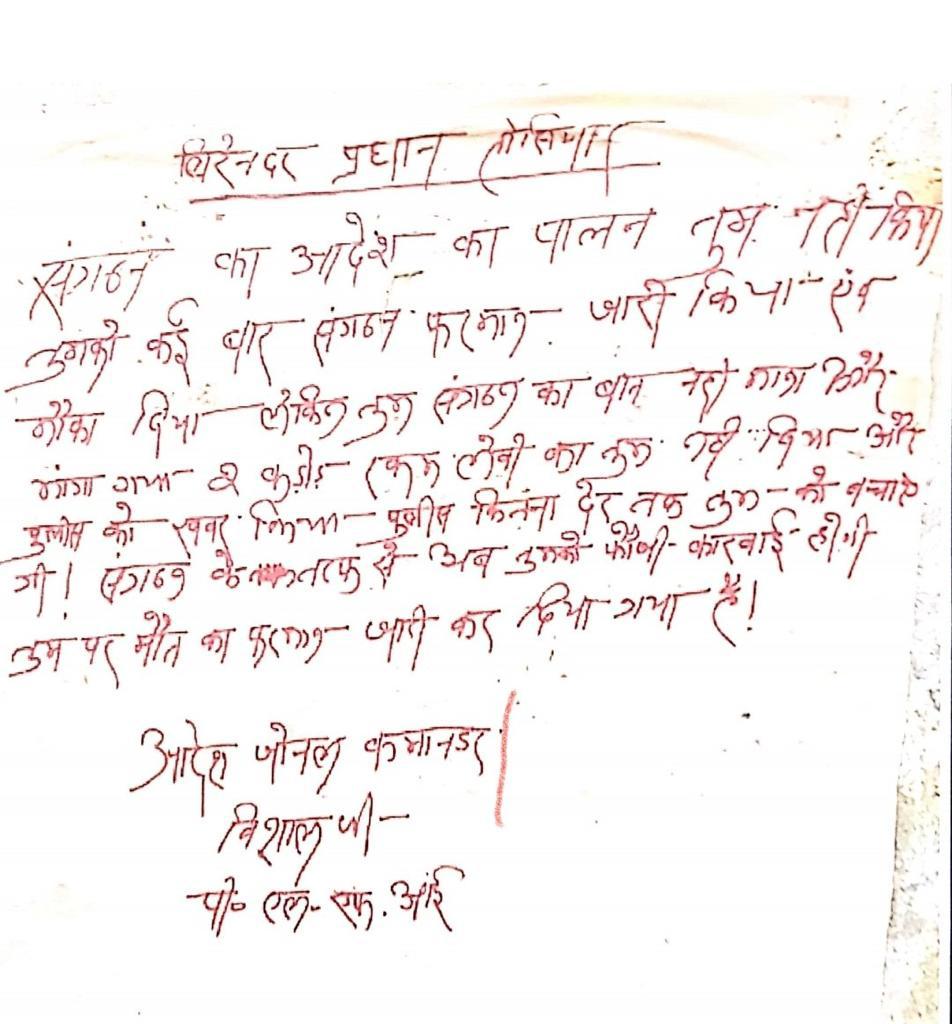 विरेनदर प्रधान तोसिया
संगठन का आदेश का पालन तुम नहीं किया
तुमको कई बार संगठन फरमान जारी किया एंव
मौका दिया लेकिन तुम संगठन का बात नही माना और
मांगा गया २ करोड़ रकम लेवी का तुम नही दिया और
पुलीस को खबर किया पुलीस कितना देर तक तुम को बचाऐ
गी! संगठन के तरफ से अब तुमको फौजी कारवाई होगी
तुम पर मौत का फरमान जारी कर दिया गया है!
आदेश जोनल कमानडर
विशाल जी
पी० एल. एफ. आई